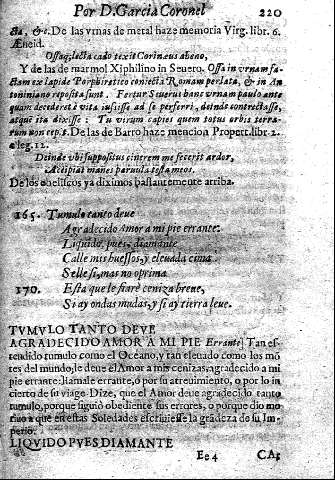 Por D. Garcia Coronel 220
cta, &c. De las vrnas de metal haze memoria Virg. libr. 6.
Æneid.
Ossaq; lecta cado texit Corineus aheno,
Y de las de marmol Xiphilino in Seuero. Ossa in vrnam fa-
ctam ex lapide Porphiritico coniecta Romam perlata, & in An
toniniano reposita sunt. Fertur Seuerus hanc vrnam paulo ante
quam decederet à vita iussisse ad se perferri, deinde contrectasse,
atque ita dixisse: Tu virum capies quem totus orbis terra-
rum non cepit. De las de Barro haze mencion Propert. libr. 2.
eleg. 12.
Deinde vbi suppositus cinerem me fecerit ardor,
Accipiat manes paruula testa meos.
De los obeliscos ya diximos bastantemente arriba.
165. Tumulo tanto deue
Agradecido Amor a mi pie errante.
Liquido, pues, diamante
Calle mis huessos, y eleuada cima
Selle si, mas no oprima
170. Esta que le fiarè ceniza breue,
Si ay ondas mudas, y si ay tierra leue.
TVMVLO TANTO DEVE
AGRADECIDO AMOR A MI PIE Errante] Tan es-
tendido tumulo como el Oceano, y tan eleuado como los mó
tes del mundo, le deue el Amor a mis cenizas, agradecido a mi
pie errante: llamale errante, ò por su atreuimiento, o por lo in
cierto de su viage. Dize, que el Amor deue agradecido tanto
tumulo, porque siguiò obediente sus errores, o porque dio mo
tiuo a que en estas Soledades escriuiesse la grãdeza de su Im-
perio.
LIQVIDO PVES DIAMANTE
Ee 4 CA;